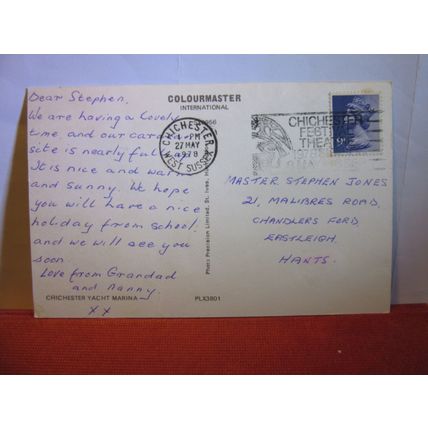 Dear Stephen,
We are having a lovely
time, and our caravan
site is nearly full
It is nice and warm
and sunny. We hope
you will have a nice
holiday from school.
and we will see you
soon.
Love from Grandad
and Nanny.
XX
CHICHESTER YACHT MARINA
PLX3801
COLOURMASTER
INTERNATIONAL
Photo Precision Limited, St. Ives,
CHICHESTER
PM
27 MAY
1978
WEST SUSSEX
CHICHESTER
FESTIVAL
THEATRE
MASTER STEPHEN JONES
21, MALIBRES ROAD,
CHANDLERS FORD,
EASTLEIGH.
HANTS.